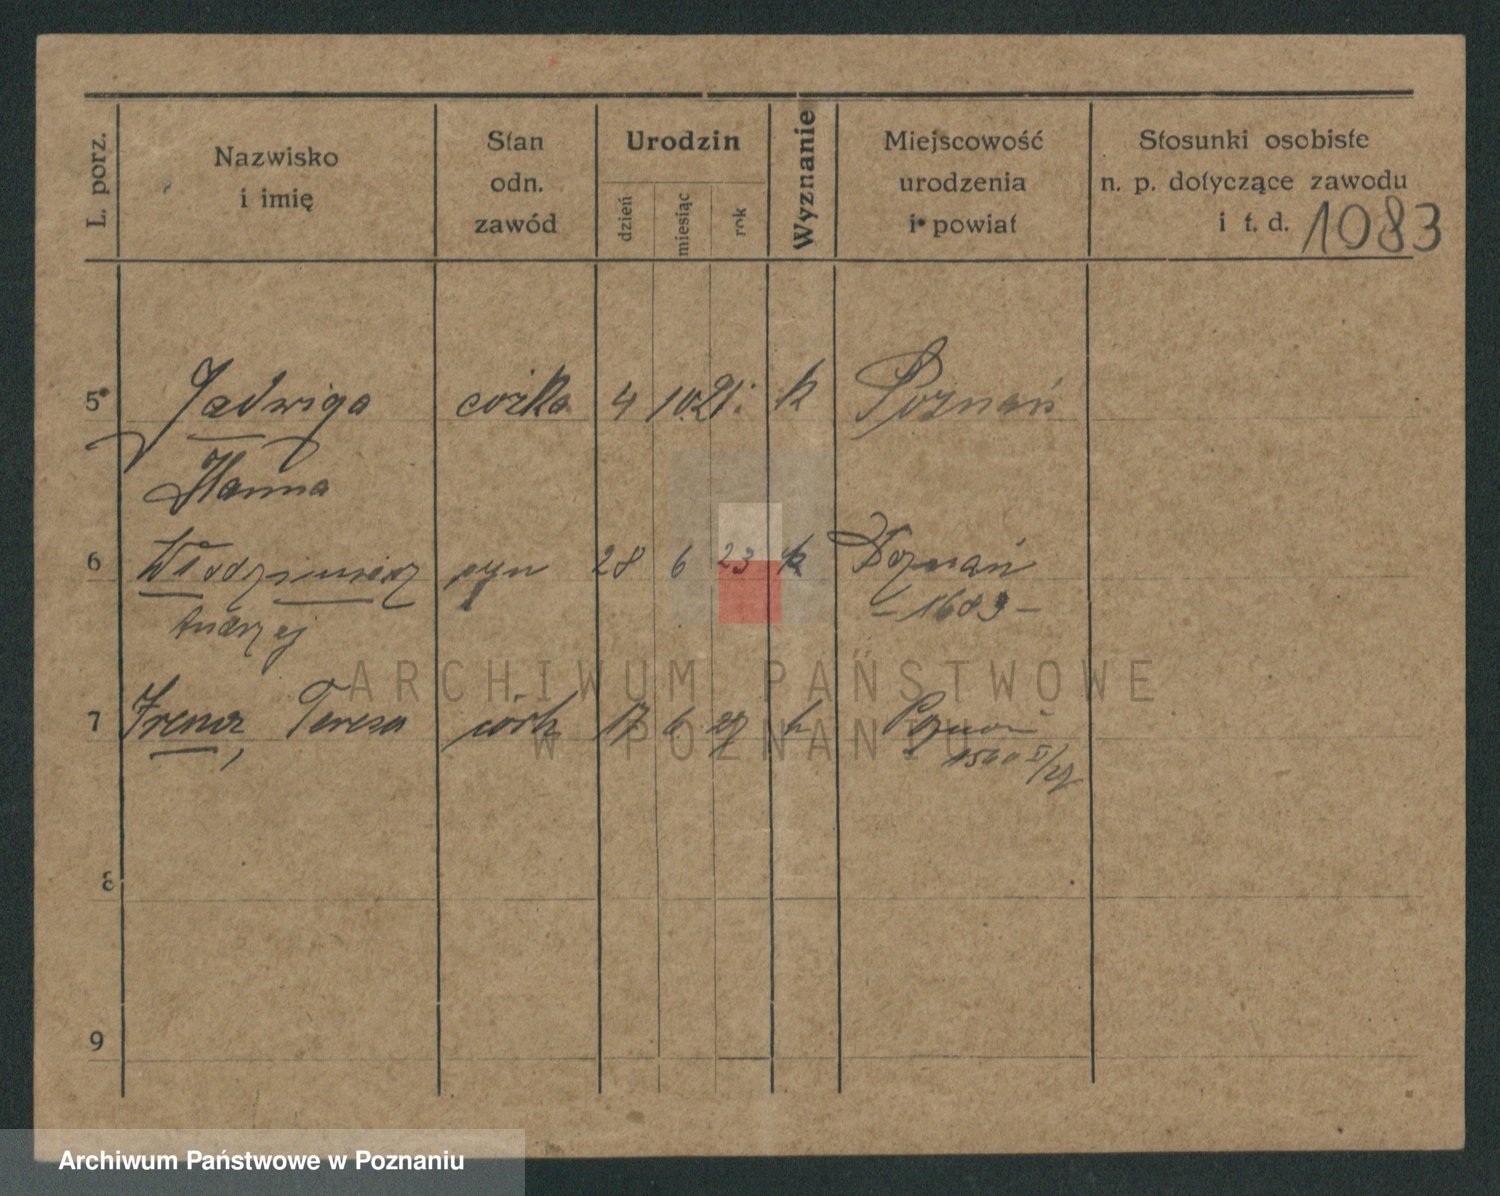 L. porz.
Nazwisko
i imię
Stan
odn.
zawód
Urodzin
dzień
miesiąc
rok
Wyznanie
Miejscowość
urodzenia
i powiat
Stosunki osobiste
n. p. dotyczące zawodu
i t. d. 1083
5 Jadwiga córka 4 10 21. k Poznań
Hanna
6 Włodzimierz syn 28 6 23 k Poznań
Andrzej - 1683 -
7 Irena, Teresa córk 17 6 27 k Poznań
8
9
ARCHIWUM PAŃSTWOWE
W POZNANIU
Archiwum Państwowe w Poznaniu